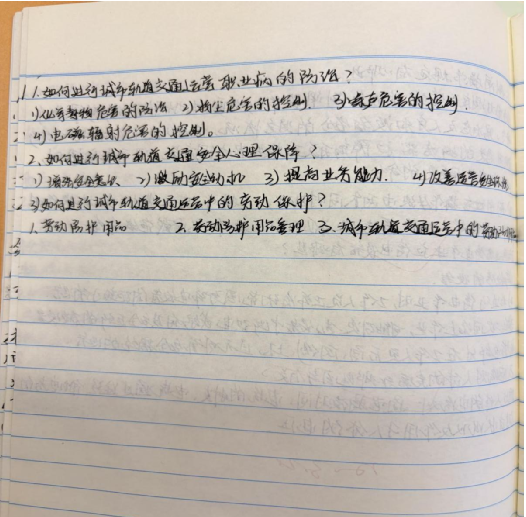 1.如何进行城市轨道交通运营职业病的防治?
1)化学毒物危害的防治 2)粉尘危害的控制 3)噪声危害的控制
4)电磁辐射危害的控制。
2.如何进行城市轨道交通安全心理保障?
1)增强安全意识 2)激励安全动机 3)提高业务能力. 4)改善运营
3.如何进行城市轨道交通运营中的劳动保护?
1.劳动防护用品 2.劳动防护用品管理 3.城市轨道交通运营中的